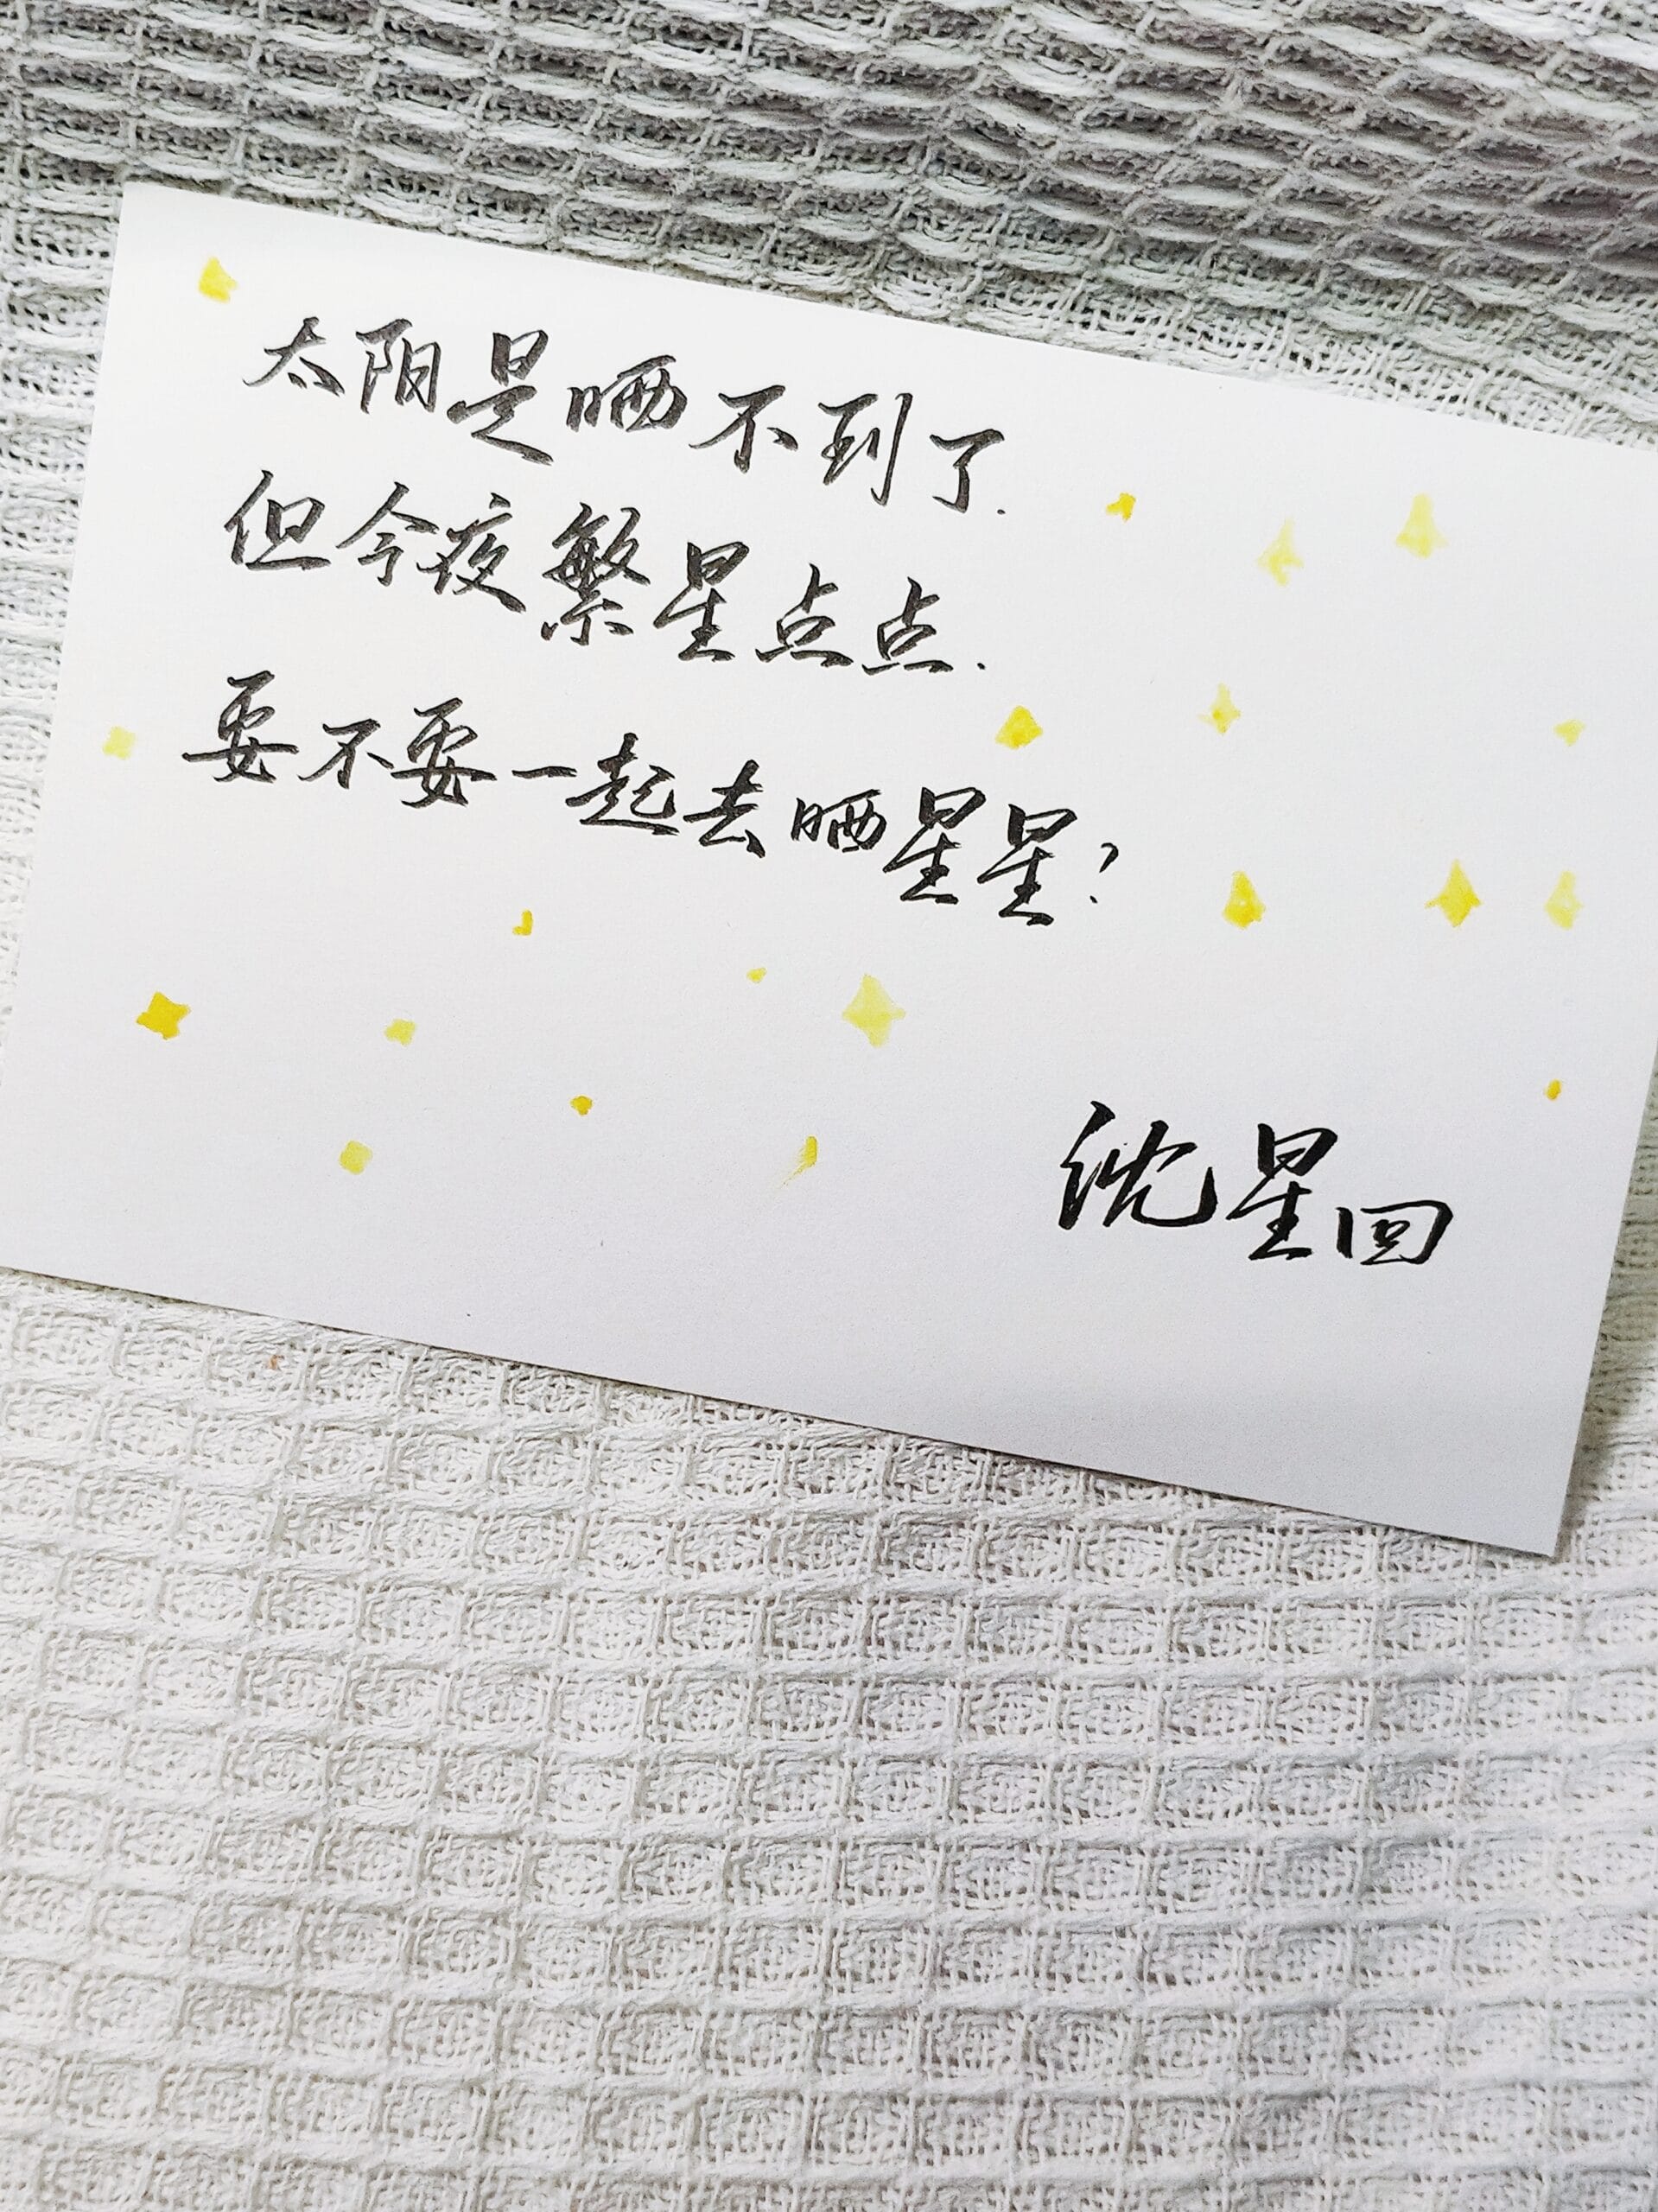 太阳是晒不到了.
但今夜繁星点点.
要不要一起去晒星星?
沈星回